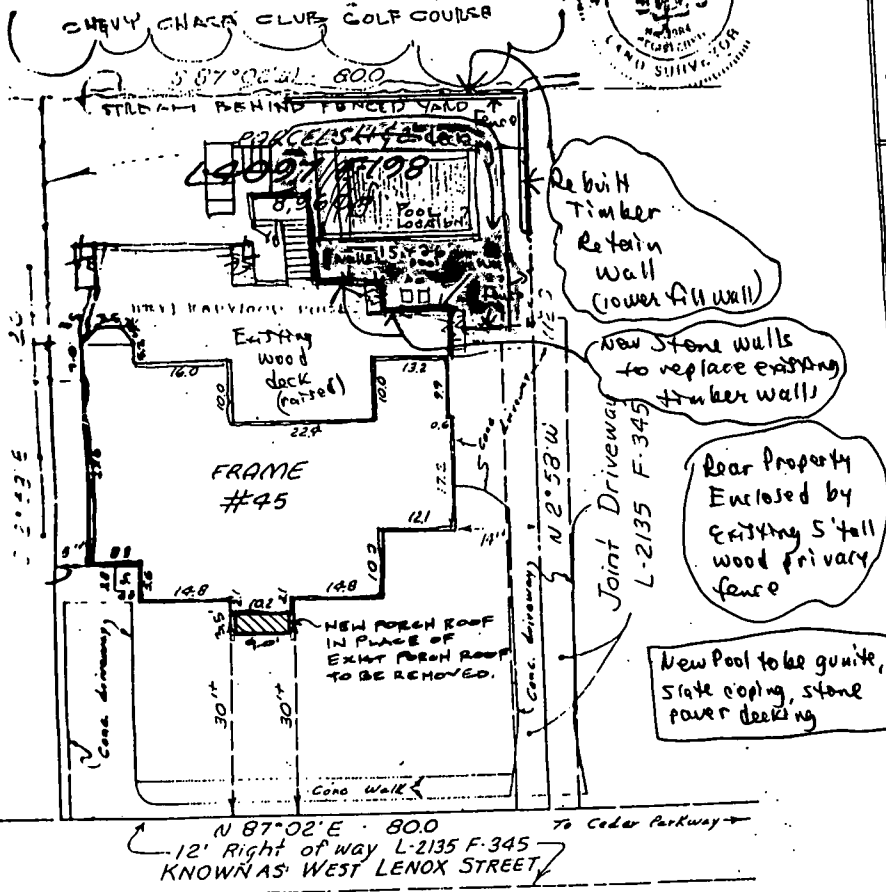 CHEVY CHASE CLUB GOLF COURSE
LAND SURVEYOR
S 87°02'W 80.0
STREAM BEHIND FENCED YARD
Fence
deck
L4097/F198
POOL
LOCATION
Rebuilt
Timber
Retain
Wall
(lower fill wall)
New Stone walls
to replace existing
timber walls
Existing
wood
deck
(raised)
16.0
10.0
22.4
10.0
13.2
9.9
0.6
17.2
12.1
14"
10.2
FRAME
#45
Conc driveway
N 2°58'W
Joint Driveway
L-2135 F-345
Rear Property
Enclosed by
Existing 5' tall
wood privacy
fence
14.8
2.1
10.2
2.1
14.8
9.0'
NEW PORCH ROOF
IN PLACE OF
EXIST PORCH ROOF
TO BE REMOVED.
New Pool to be gunite,
slate coping, stone
paver decking
Conc. driveway
30'±
30'±
Conc. driveway
Conc Walk
N 87°02'E · 80.0
To Cedar Parkway
12' Right of way L-2135 F-345
KNOWN AS WEST LENOX STREET